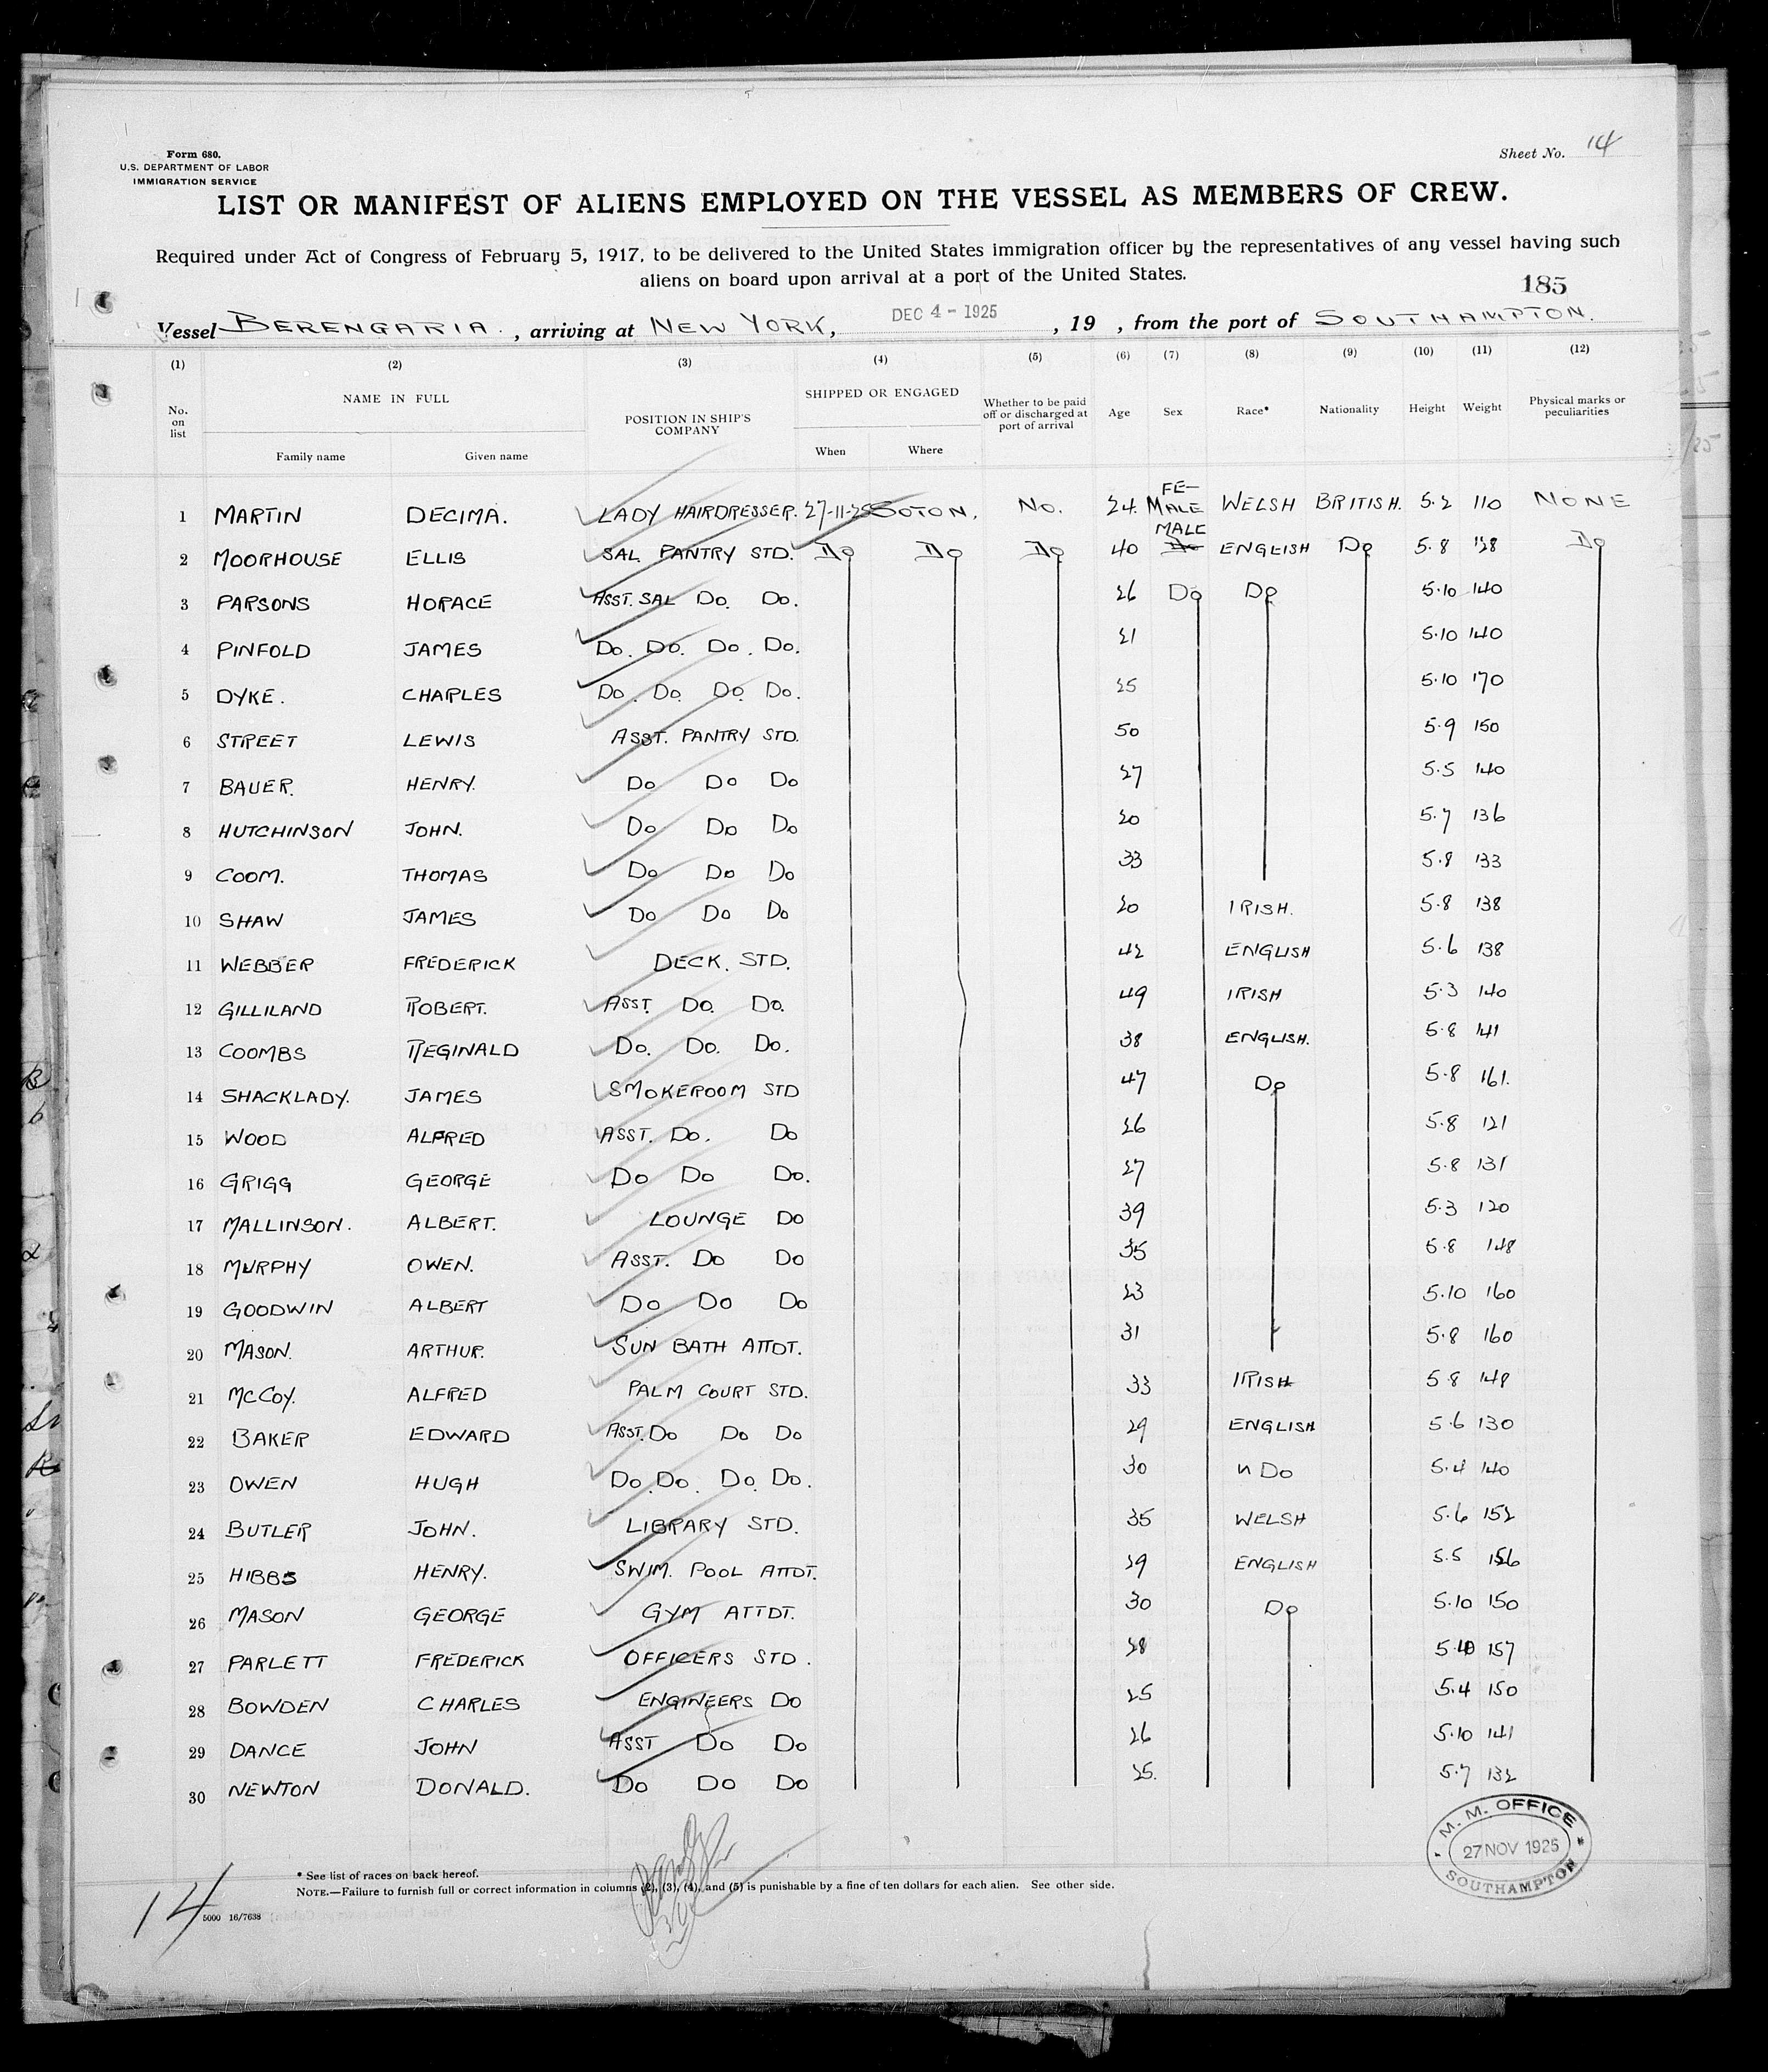 Form 680.
U.S. DEPARTMENT OF LABOR
IMMIGRATION SERVICE
Sheet No. 14
LIST OR MANIFEST OF ALIENS EMPLOYED ON THE VESSEL AS MEMBERS OF CREW.
Required under Act of Congress of February 5, 1917, to be delivered to the United States immigration officer by the representatives of any vessel having such
aliens on board upon arrival at a port of the United States.
185
Vessel BERENGARIA. , arriving at NEW YORK, DEC 4 - 1925 , 19 , from the port of SOUTHAMPTON.
(1) (2) (3) (4) (5) (6) (7) (8) (9) (10) (11) (12)
No. on list NAME IN FULL POSITION IN SHIP'S COMPANY SHIPPED OR ENGAGED Whether to be paid off or discharged at port of arrival Age Sex Race* Nationality Height Weight Physical marks or peculiarities
Family name Given name When Where
1 MARTIN DECIMA. LADY HAIRDRESSER. 27-11-25 SOTON. NO. 24. FE-MALE WELSH BRITISH. 5.2 110 NONE
2 MOORHOUSE ELLIS SAL. PANTRY STD. Do Do Do 40 MALE ENGLISH Do 5.8 138 Do
3 PARSONS HORACE ASST. SAL Do. Do. 26 Do Do 5.10 140
4 PINFOLD JAMES Do. Do. Do. Do. 21 5.10 140
5 DYKE. CHARLES Do. Do. Do. Do. 25 5.10 170
6 STREET LEWIS ASST. PANTRY STD. 50 5.9 150
7 BAUER. HENRY. Do Do Do 27 5.5 140
8 HUTCHINSON JOHN. Do Do Do 20 5.7 136
9 COOM. THOMAS Do Do Do 33 5.8 133
10 SHAW JAMES Do Do Do 20 IRISH. 5.8 138
11 WEBBER FREDERICK DECK. STD. 42 ENGLISH 5.6 138
12 GILLILAND ROBERT. ASST. Do. Do. 49 IRISH 5.3 140
13 COOMBS REGINALD Do. Do. Do. 38 ENGLISH. 5.8 141
14 SHACKLADY. JAMES SMOKEROOM STD 47 Do 5.8 161.
15 WOOD ALFRED ASST. Do. Do 26 5.8 121
16 GRIGG GEORGE Do Do Do. 27 5.8 131
17 MALLINSON. ALBERT. LOUNGE Do 39 5.3 120
18 MURPHY OWEN. ASST. Do Do 35 5.8 148
19 GOODWIN ALBERT Do Do Do 23 5.10 160
20 MASON. ARTHUR. SUN BATH ATTDT. 31 5.8 160
21 McCOY. ALFRED PALM COURT STD. 33 IRISH 5.8 148
22 BAKER EDWARD ASST. Do Do Do 29 ENGLISH 5.6 130
23 OWEN HUGH Do. Do. Do. Do. 30 Do 5.4 140
24 BUTLER JOHN. LIBRARY STD. 35 WELSH 5.6 152
25 HIBBS HENRY. SWIM. POOL ATTDT. 29 ENGLISH 5.5 156
26 MASON GEORGE GYM ATTDT. 30 Do 5.10 150
27 PARLETT FREDERICK OFFICERS STD. 28 5.10 157
28 BOWDEN CHARLES ENGINEERS Do 25 5.4 150
29 DANCE JOHN ASST Do Do 26 5.10 141
30 NEWTON DONALD. Do Do Do 25. 5.7 132
M. M. OFFICE
27 NOV 1925
SOUTHAMPTON
* See list of races on back hereof.
NOTE.—Failure to furnish full or correct information in columns (2), (3), (4), and (5) is punishable by a fine of ten dollars for each alien. See other side.
14
5000 16/7638